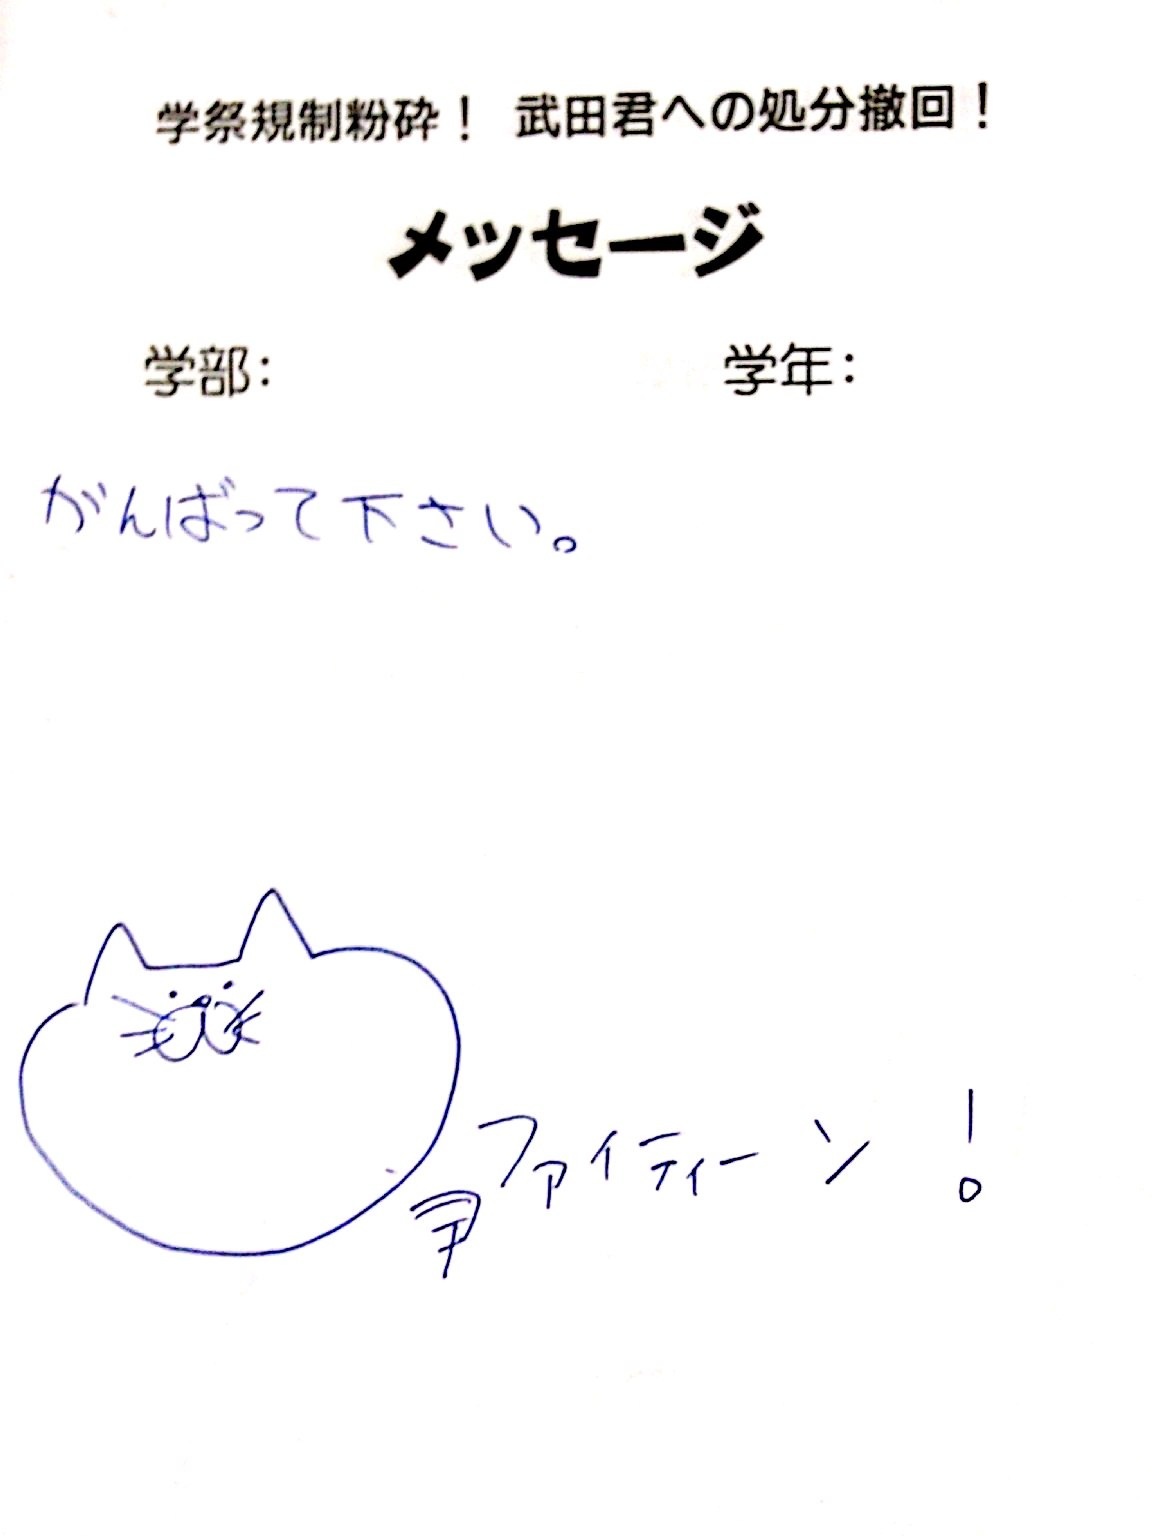 学祭規制粉砕！ 武田君への処分撤回！
メッセージ
学部： 学年：
がんばって下さい。
ファイティーン！